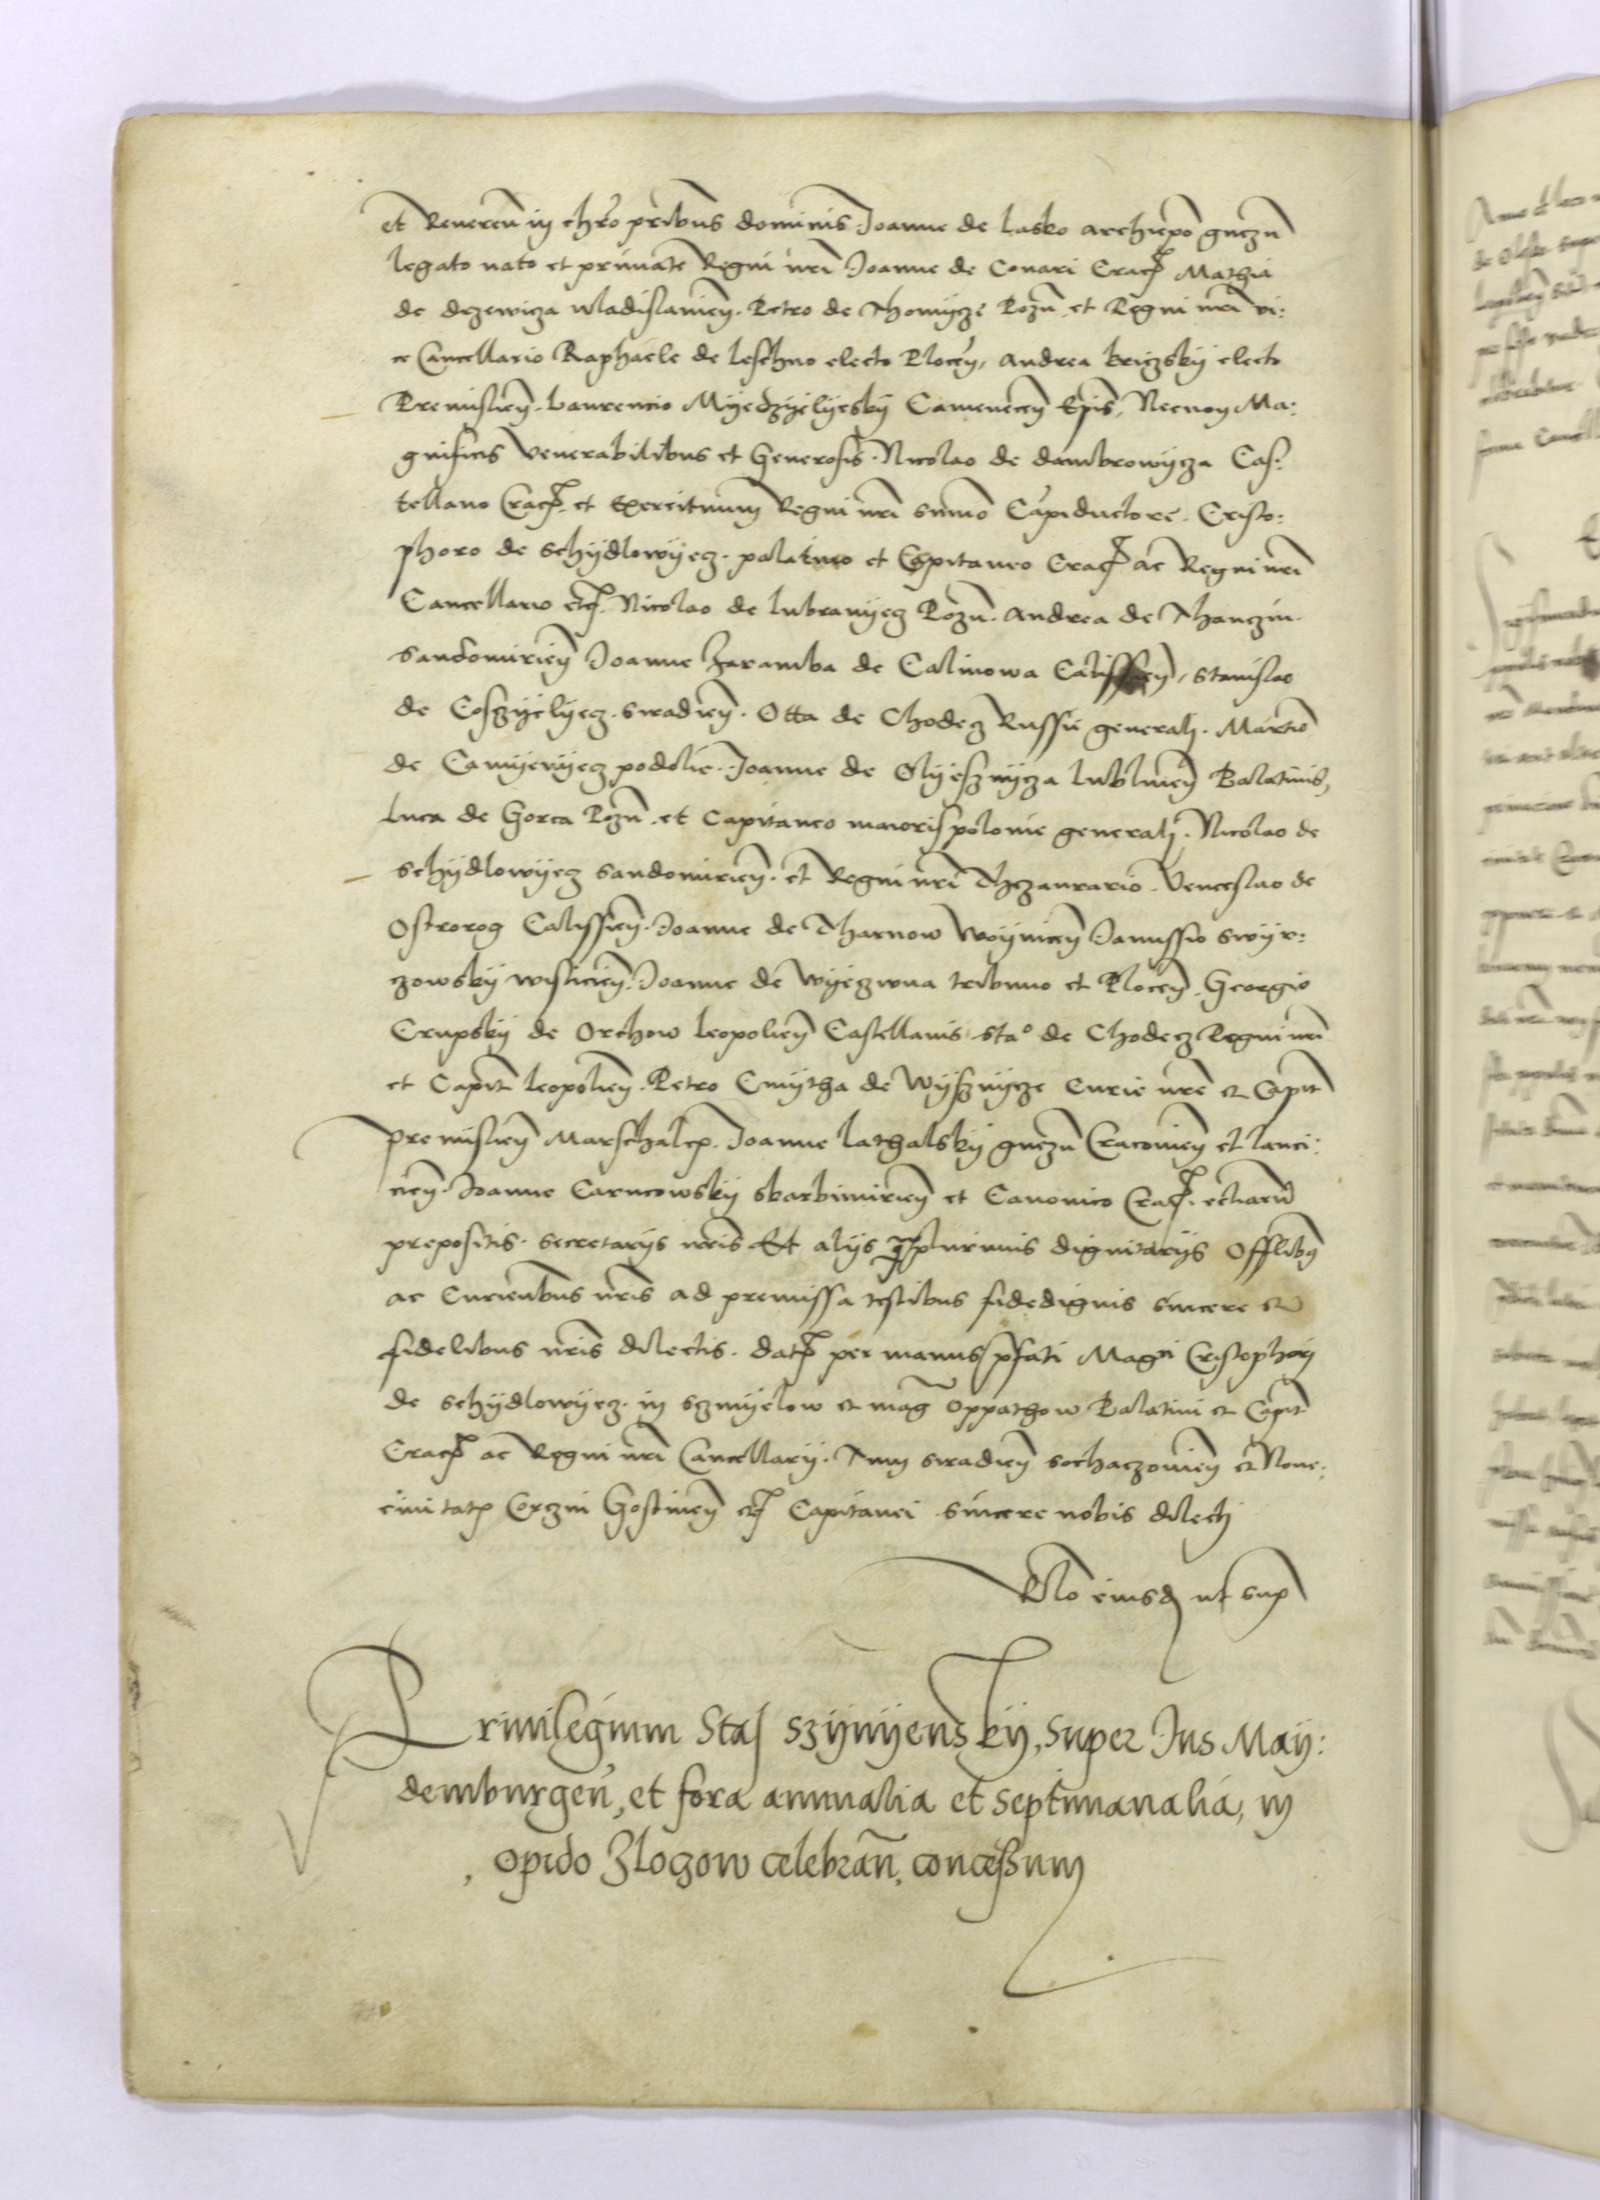 et Reveren in chro pribus dominis Joanne de Lasko archiepo gnezn
legato nato et primate Regni nri Joanne de Conari Crac Mathia
de drzewicza wladislavien. Petro de Thomycze Pozn et Regni nri vi:
ce Cancellario Raphaele de Leschno electo Plocen, Andrea kriczsky electo
Premislien. Laurencio Myedzylyesky Camenecen Epis, Necnon Ma:
gnificis venerabilibus et Generosis. Nicolao de dambrowycza Cas:
tellano Crac. et Exercituum Regni nri summo Capiductore. Cristo:
phoro de schydlowyecz. palatino et Capitaneo Crac ac Regni nri
Cancellario etc. Nicolao de lubranyecz Pozn. Andrea de Thanczin.
Sandomirien Joanne Zaramba de Calinowa Calissien, Stanislao
de Coszyelyecz. siradien. Otta de Chodecz Russie generali. Martino
de Camyenyecz podolie. Joanne de Olyesznycza lublinen Palatinis,
Luca de Gorca Pozn. et Capitaneo maioris polonie generali. Nicolao de
schydlowyecz sandomirien. et Regni nri Thezaurario. Venceslao de
Ostrorog Calissien. Joanne de Tharnow Woynicen Janussio swyr:
czowsky wislicien. Joanne de Wyeczwna tribuno et Plocen. Georgio
Crupsky de Orchow leopolien Castellanis Sta° de Chodecz Regni nri
et Capit leopolien. Petro Cmytha de Wysznycze Curie nre et Capit
premislien Marschalcis. Joanne lathalsky gnezn Cracovien et lanci:
cien. Joanne Carncowsky skarbimirien et Canonico Crac. ecliarum
prepositis. Secretariis nris Et aliis plurimis dignitariis Offlibus
ac Curiensibus nris ad premissa testibus fidedignis sincere et
fidelibus nris dilectis. dat per manus pfati Magci Cristophori
de schydlowyecz. in Szmyelow et mag Oppathow Palatini et Capit
Crac ac Regni nri Cancellarii. Tum siradien sochaczovien et Nove:
civitatis Corczin Gostinen etc Capitanei sincere nobis dilecti
Rlo eiusd ut sup
Privilegium Stas Szynyensky, super Jus May:
demburgen, et fora annualia et septimanalia, in
, opido Zlogow celebran, concessum